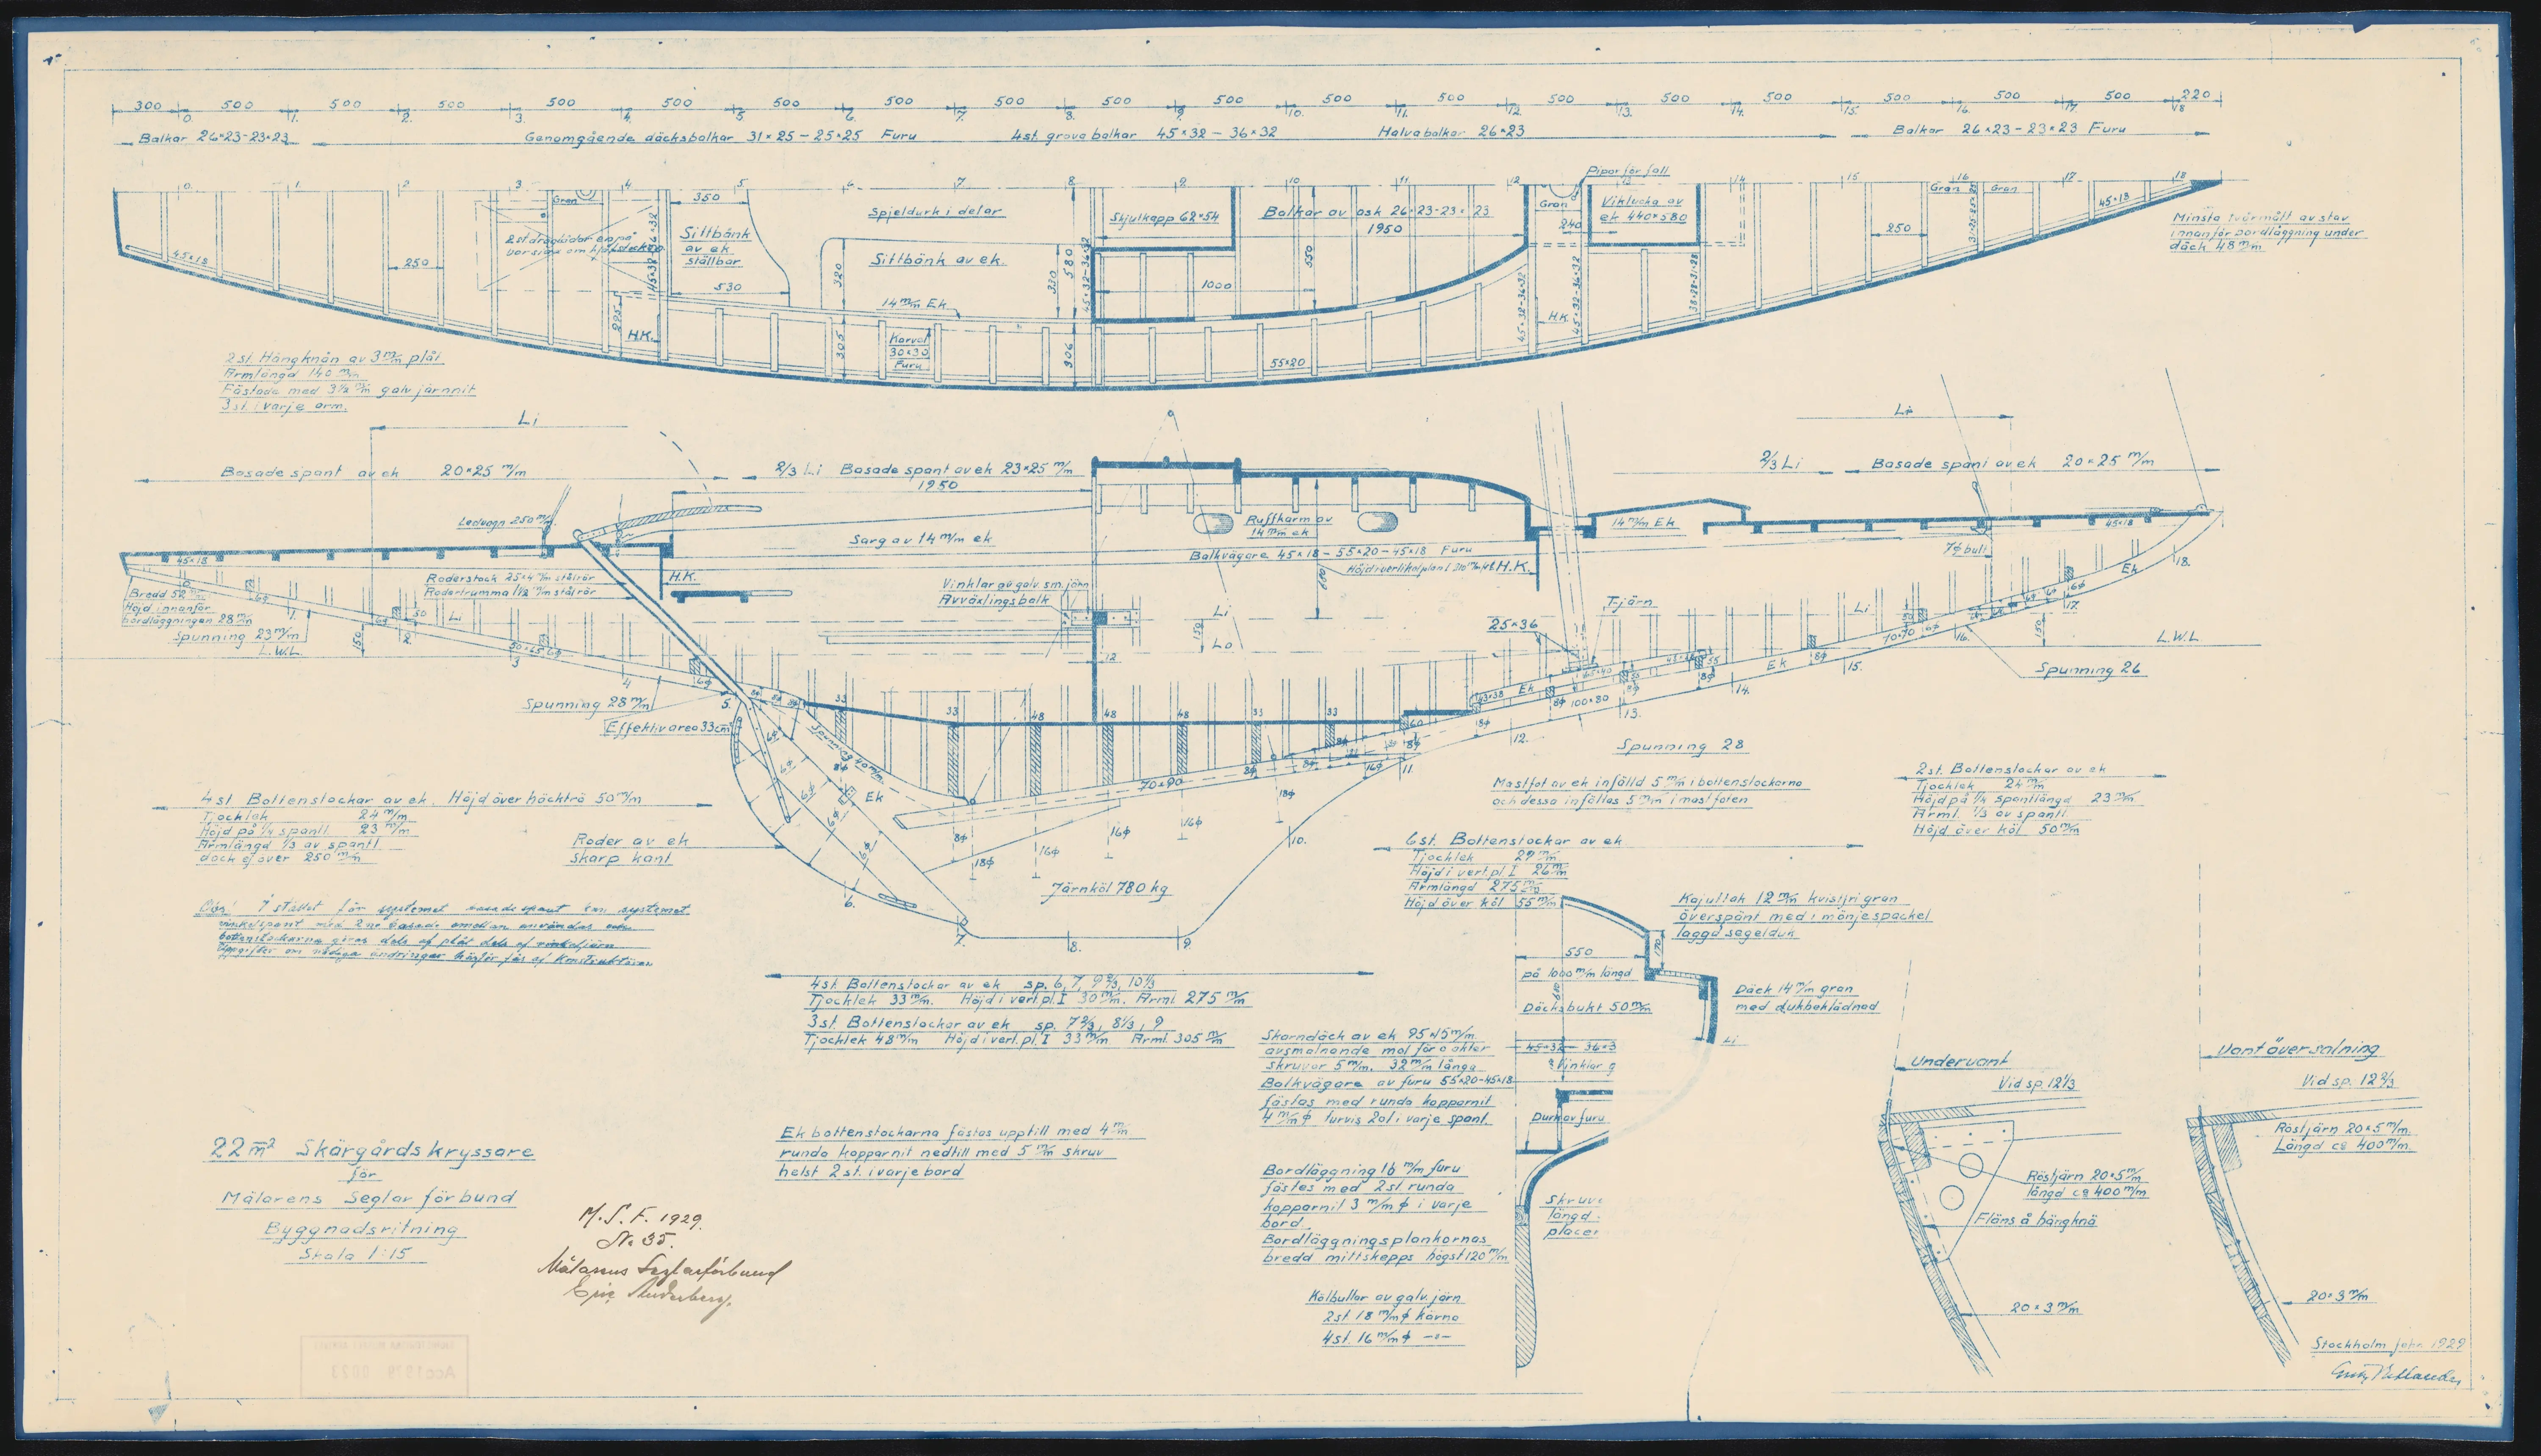 300 500 500 500 500 500 500 500 500 500 500 500 500 500 500 500 500 500 500 220
0. 1. 2. 3. 4. 5. 6. 7. 8. 9. 10. 11. 12. 13. 14. 15. 16. 17. 18
Balkar 26×23-23×23
Genomgående däcksbalkar 31×25-25×25 Furu
4st. grova balkar 45×32-36×32
Halvabalkar 26×23
Balkar 26×23-23×23 Furu
0. 1. 2 3 4 5. 6. 7. 8. 9. 10 11 12 13 14 15 16 17 18
Pipor för fall
Gran
350
Spjeldurk i delar
Skjutkapp 62×54
Balkar av ask 26×23-23×23
1950
Gran
240
Viklucka av
ek 440×580
Gran
Gran
45×18
Minsta tvärmått av stäv
innanför bordläggning under
däck 48 m/m
Sittbänk
av ek
ställbar
Sittbänk av ek.
45×18
250
530
320
330
580
45×32-36×32
1000
550
250
14 m/m Ek
225
H.K.
305
Karvol
30×30
Furu
306
55×20
45×32-36×32
H.K.
45×32-36×32
2st. Hängknän av 3 m/m plåt
Armlängd 140 m/m
Fästade med 3½ m/m galv järnnit
3st. i varje arm.
Li
Li
Basade spant av ek 20×25 m/m
2/3 Li Basade spant av ek 23×25 m/m
2/3 Li
Basade spant av ek 20×25 m/m
1950
Ledvagn 250 m/m
Sarg av 14 m/m ek
Ruffkarm av
14 m/m ek
14 m/m Ek
45×18
Balkvägare 45×18-55×20-45×18 Furu
7ϕ bult
45×18
Roderstock 25×4 m/m stålrör
Rodertrumma 1½ m/m stålrör
H.K.
Vinklar av galv. sm. järn
Avväxlingsbalk
H.K.
Ek
18.
Bredd 52 m/m
Höjd innanför
bordläggningen 28 m/m
Spunning 23 m/m
L.W.L.
150
50
Li
Li
150
Lo
T-järn
25×36
Li
70×70
150
L.W.L.
12
Spunning 26
Spunning 28 m/m
Effektiv area 33 cm²
5.
33
33
48
48
48
33
33
60
43×38
Ek
100×80
Ek
12.
13.
14.
15.
16.
17.
Spunning 28
Spunning 40 m/m
Ek
70×90
11.
Mastfot av ek infälld 5 m/m i bottenstockarna
och dessa infällas 5 m/m i mastfoten
2st. Bottenstockar av ek
Tjocklek 24 m/m
Höjd på ¼ spantlängd 23 m/m
Arml. 1/3 av spantl.
Höjd över köl 50 m/m
4st Bottenstockar av ek. Höjd över häckträ 50 m/m
Tjocklek 24 m/m
Höjd på ¼ spantl. 23 m/m
Armlängd 1/3 av spantl.
dock ej över 250 m/m
Roder av ek
Skarp kant
8ϕ
18ϕ
16ϕ
16ϕ
16ϕ
18ϕ
10.
Järnköl 780 kg
6.
7.
8.
9.
6st. Bottenstockar av ek
Tjocklek 29 m/m
Höjd i vert. pl. I 26 m/m
Armlängd 275 m/m
Höjd över köl 55 m/m
Obs! I stället för systemet basade spant kan systemet
vinkelspant med 2 ne basade emellan användas och
bottenstockarna göras dels af plåt dels af vinkeljärn
Uppgifter om nödiga ändringar härför fås af Konstruktören
Kajutlak 12 m/m kvistfri gran
överspänt med i mönjespackel
laggd segelduk
550
170
på 1000 m/m längd
Däcksbukt 50 m/m
Däck 14 m/m gran
med dukbeklädnad
Li
4st. Bottenstockar av ek sp. 6, 7, 9 2/3, 10 1/3
Tjocklek 33 m/m. Höjd i vert. pl. I 30 m/m. Arml. 275 m/m
3st. Bottenstockar av ek sp. 7 2/3, 8 1/3, 9
Tjocklek 48 m/m Höjd i vert. pl. I 33 m/m Arml. 305 m/m
Skarndäck av ek 95×15 m/m
avsmalnande mot för o akter
skruvar 5 m/m. 32 m/m långa
Balkvägare av furu 55×20-45×18
fästas med runda kopparnit
4 m/m ϕ turvis 2 o 1 i varje spant.
45×32 - 36×3
Vinklar g
Durk av furu
Undervant
Vid sp. 12 1/3
Vant översalning
Vid sp. 12 2/3
Röstjärn 20×5 m/m.
Längd ca 400 m/m.
Röstjärn 20×5 m/m
längd ca 400 m/m
Fläns å hängknä
20×3 m/m
20×3 m/m
Ek bottenstockarna fästas upptill med 4 m/m
runda kopparnit nedtill med 5 m/m skruv
helst 2 st. i varje bord
Bordläggning 16 m/m furu
fästes med 2 st. runda
kopparnit 3 m/m ϕ i varje
bord.
Bordläggningsplankornas
bredd mittskepps högst 120 m/m
Skruv
längd
placer
Kölbultar av galv. järn
2st 18 m/m ϕ kärna
4st. 16 m/m ϕ -"-
22 m² Skärgårdskryssare
för
Mälarens Seglarförbund
Byggnadsritning
Skala 1:15
M.S.F. 1929.
No 35.
Mälarens Seglarförbund
Stockholm febr. 1929